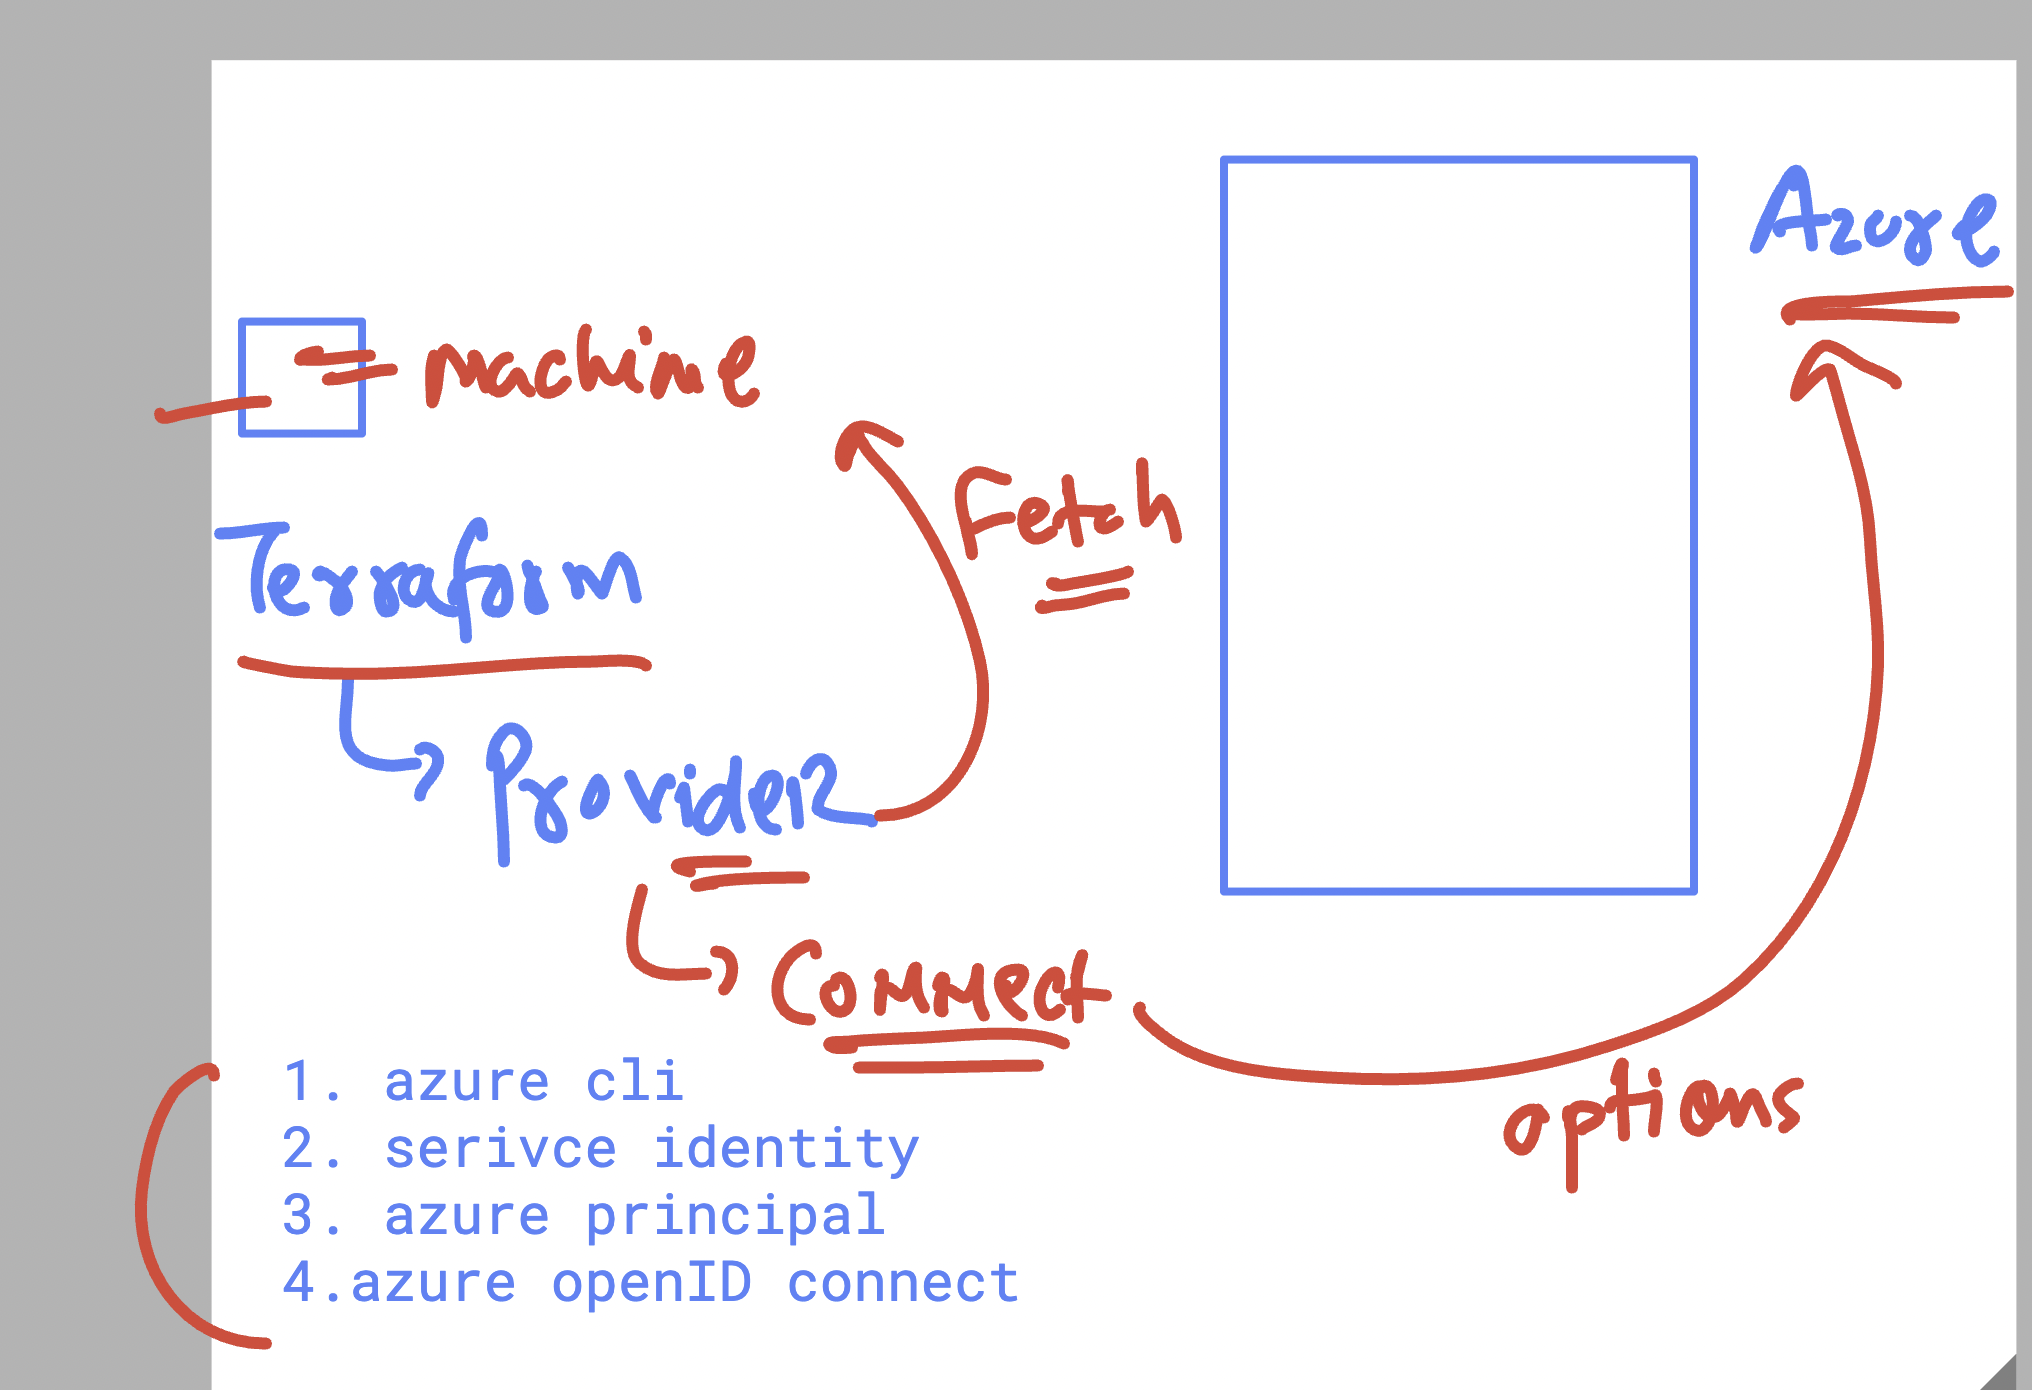 Azure
machine
Fetch
Terraform
Provider
Connect
options
1. azure cli
2. serivce identity
3. azure principal
4.azure openID connect